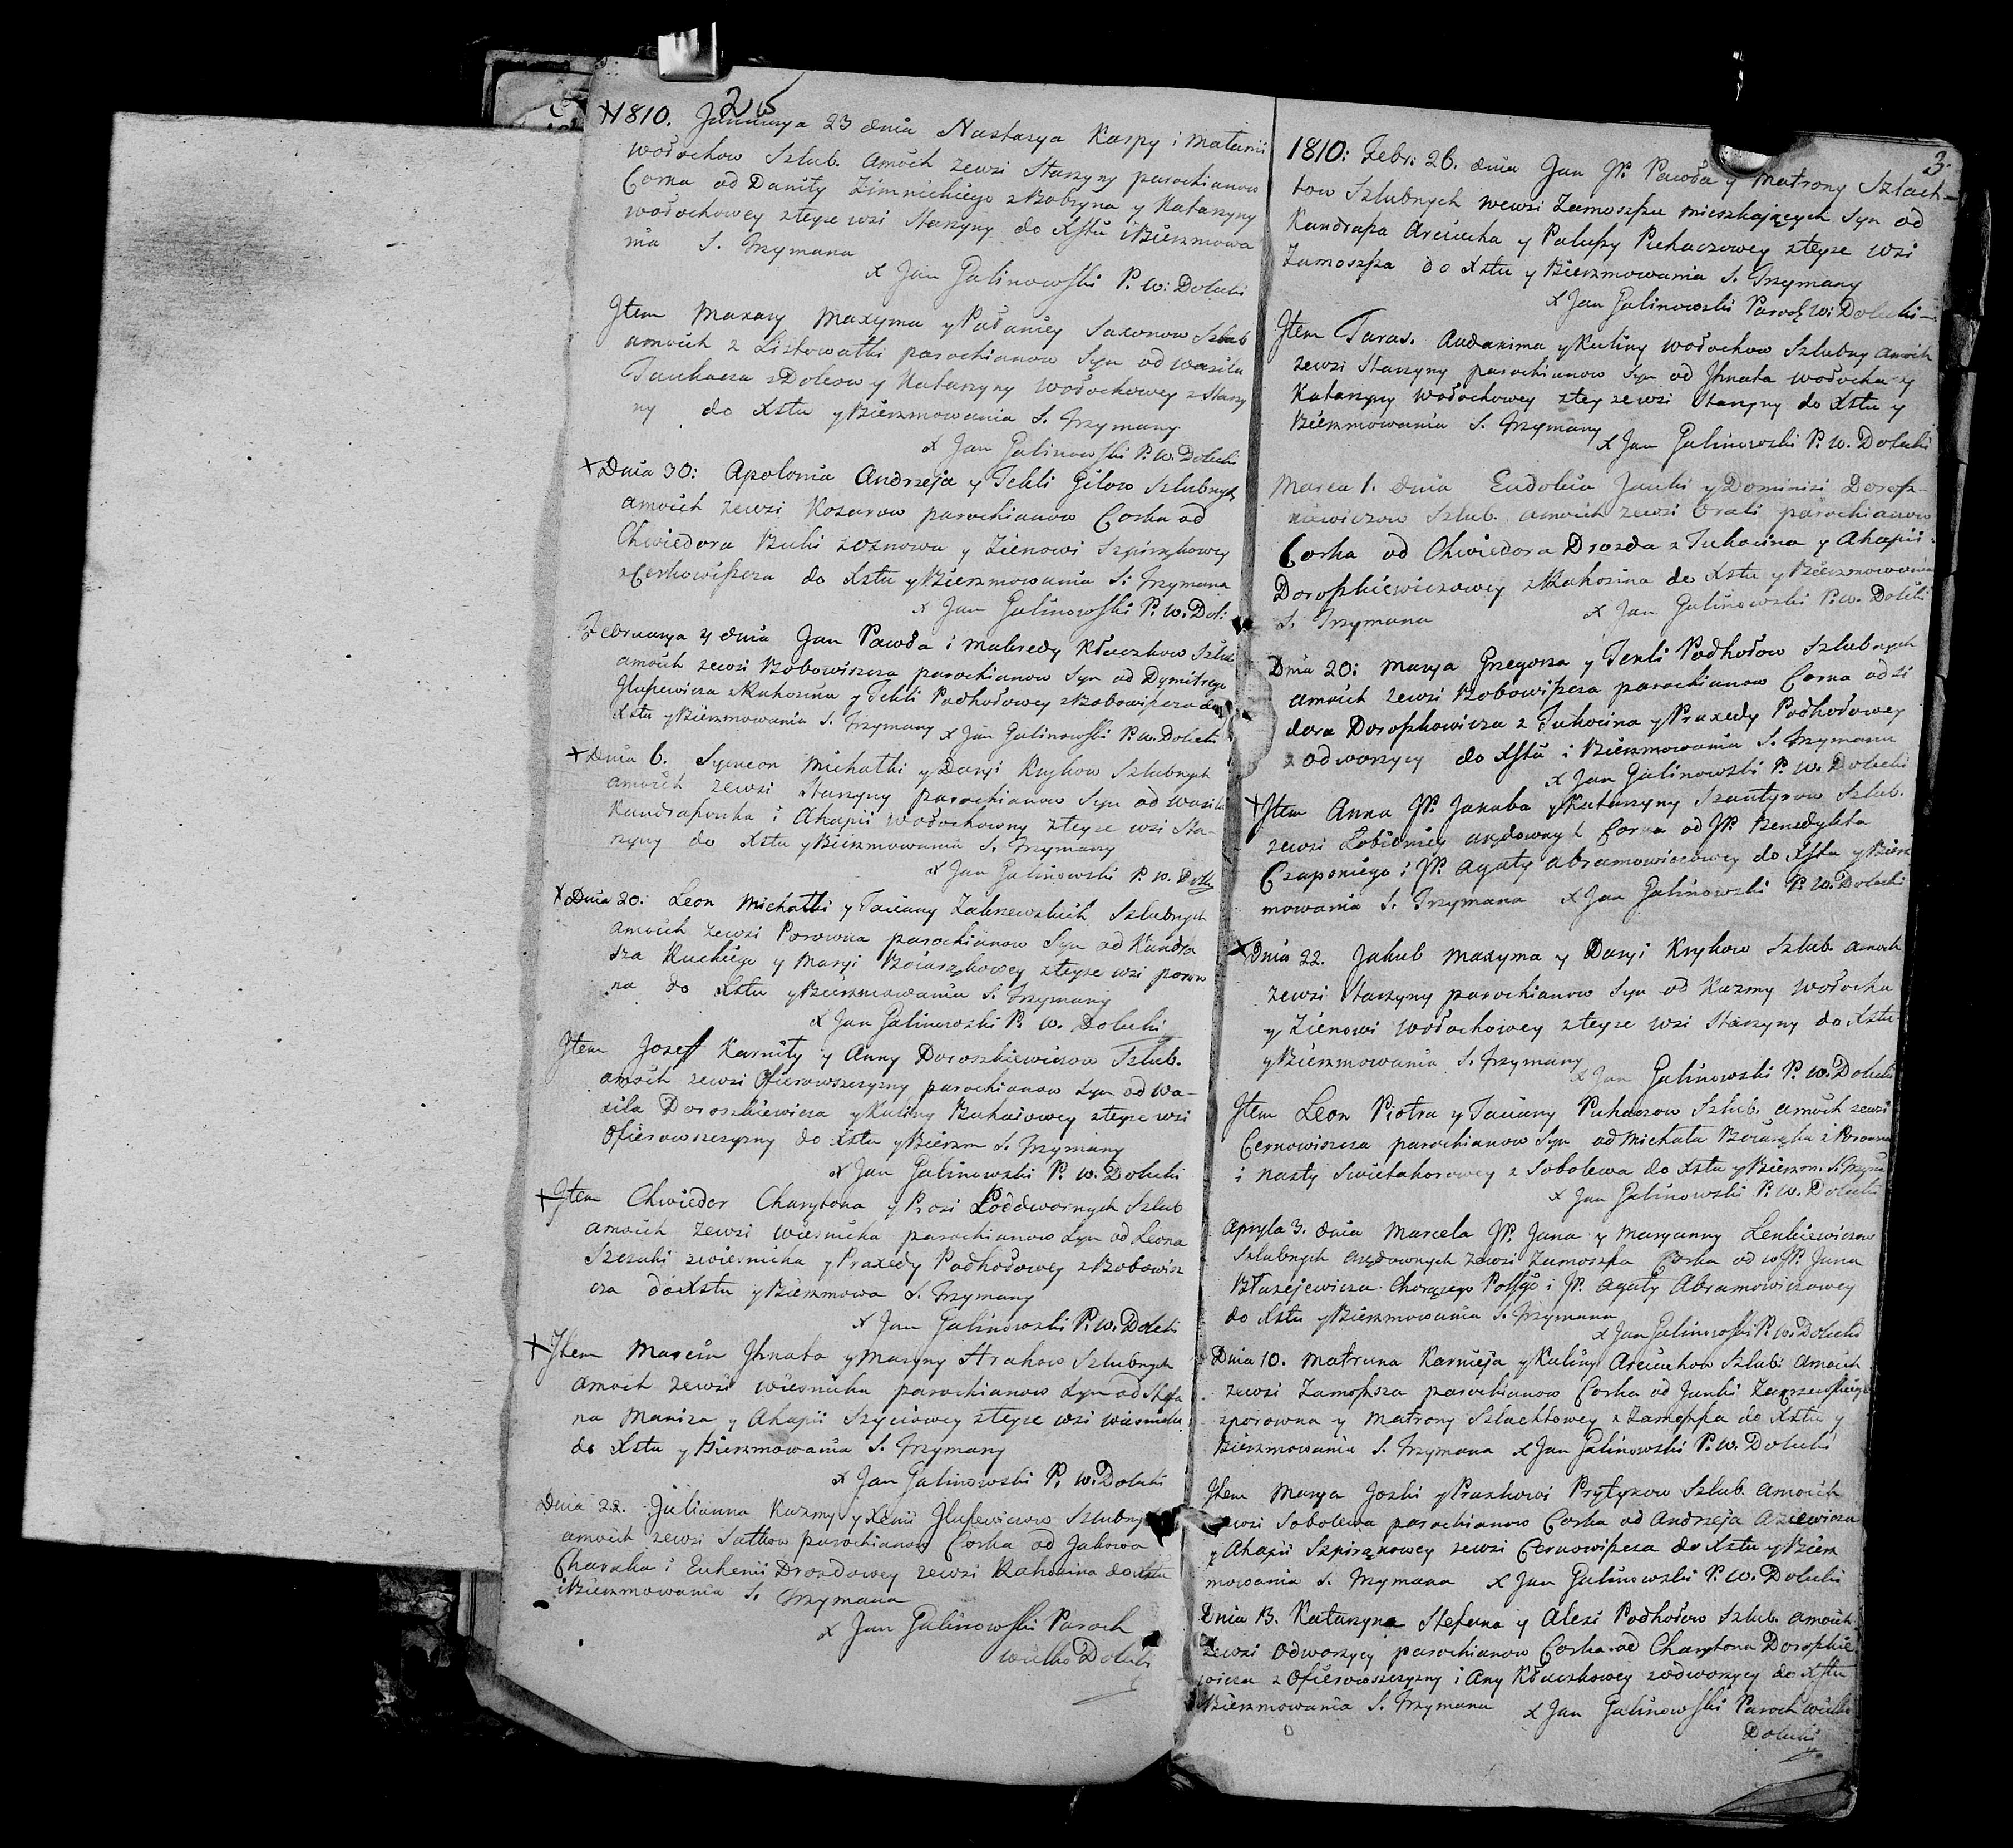 1810. Januarya 23 dnia Nastazya Karpy i Matruni
Wołochow Szlub. amoich zewsi Starzyny parochianow
Corka od Daniły Zimnickiego z Bobryna y Katarzyny
Wołochowey zteyze wsi Starzyny do Xstu i Bierzmowa
nia S. Trzymana
X Jan Galinowski P. W: Dołucki
Jtem Maxary Maxyma y Pałaniey Saxonow Szlub
amoich z Listowatki parochianow Syn od Wasila
z Dolcow y Katarzyny Wołochowey z Starzy
ny do Xstu y Bierzmowania S. Trzymany
X Jan Galinowski P. W. Dołucki
Dnia 30: Apolonia Andrzeja y Tekli Gilow Szlubnych
amoich zewsi Kozarow parochianow Corka od
Chwiedora Buki y Zienowi Szpirzkowey
z Cerkowiszcza do Xstu y Bierzmowania S: Trzymana
X Jan Galinowski P. W. Doł:
Februarya 4 dnia Jan Pawła i Maƚredy Kłaczkow Szlub
amoich zewsi Bobowiszcza parochianow Syn od Dymitrego
Hłuszewicza z Rahozina y Tekli Podhołowey z Bobowiszcza do
Xstu y Bierzmowania S. Trzymany X Jan Galinowski P. W. Dołucki
Dnia 6. Symeon Michałki y Daryi Krykow Szlubnych
amoich zewsi Starzyny parochianow Syn od Wasila
Kandraponka i Ahapii Wołochowny zteyze wsi Sta-
rzyny do Xstu y Bierzmowania S. Trzymany
X Jan Galinowski P. W. Dołu
Dnia 20: Leon Michałki y Taciany Zaleszewskich Szlubnych
amoich zewsi Porowna parochianow Syn od Kandra
sza Ruckiego y Maryi Bociarzkowey zteyze wsi porow
na do Xstu y Bierzmowania S. Trzymany
X Jan Galinowski P. W. Dołucki
Jtem Jozeff Karniły y Anny Doroszkiewiczow Szlub.
amoich zewsi Ofierowszczyzny parochianow Syn od Wa-
sila Doroszkiewicza y Kuliny Buhaiowey zteyze wsi
Ofierowszczyzny do Xstu y Bierzm S. Trzymany
X Jan Galinowski P. W. Dołucki
Jtem Chwiedor Charytona y Prosi Poddwornych Szlub
amoich zewsi Wiesnicka parochianow Syn od Leona
Szczuki zwiesnicka y Praxedy Podhołowey z Bobowisz
cza do Xstu y Bierzmowa S. Trzymany
X Jan Galinowski P. W. Dołucki
Jtem Marcin Jhnata y Maryny Hrakow Szlubnych
amoich zewsi Wiesnicka parochianow Syn od Stefa
na Maniza y Ahapii Szyciowey zteyze wsi Wiesnicka
do Xstu y Bierzmowania S. Trzymany
X Jan Galinowski P. W. Dołucki
Dnia 22. Julianna Kuzmy y Xenii Hłuszewiczow Szlubny
amoich zewsi Satkow parochianow Corka od Jakowa
Charaka i Euhenii Drozdowey zewsi Rahozina do Xstu
i Bierzmowania S. Trzymana
X Jan Galinowski Paroch
wielko Dołucki
3.
1810: Febr: 26. dnia Jan JP. Pawła y Matrony Szlach-
tow Szlubnych wewsi Zamoszsza mieszkających Syn od
Kandrasza Arciucha y Palaszy Puhaczowey zteyze wsi
Zamoszsza do Xstu y Bierzmowania S. Trzymany
X Jan Galinowski Paroch W: Dołucki
Jtem Taras. Audakima y Kuliny Wołochow Szlubny amoich
zewsi Starzyny parochianow Syn od Jhnata Wołocha y
Katarzyny Wołochowey ztey ze wsi Starzyny do Xstu y
Bierzmowania S. Trzymany
X Jan Galinowski P. W. Dołucki
Marca 1. dnia Eudokia Janki y Dominisi Dorosz-
kiewiczow Szlub. amoich zewsi Orali parochianow
Corka od Chwiedora Drozda z Tuhocina y Ahapii
Doroszkiewiczowey z Rahozina do Xstu y Bierzmowania
S. Trzymana X Jan Galinowski P. W. Dołucki
Dnia 20: Marya Grzegorza y Tekli Podhołow Szlubnych
amoich zewsi Bobowiszcza parochianow Corka od Si
dora Doroszkowicza z Tuhocina y Praxedy Podhołowey
z odworzycy do Xstu i Bierzmowania S. Trzymana
X Jan Galinowski P. W. Dołucki
Jtem Anna JP. Jakuba y Katarzyny Szantyrow Szlub.
zewsi Łobidnicy arędownych Corka od JP. Benedykta
Czaponiego i JP. Agaty Abramowiczowey do Xstu y Bierz
mowania S. Trzymana X Jan Galinowski P. W. Dołucki
Dnia 22. Jakub Maxyma y Daryi Krykow Szlub. amoich
zewsi Starzyny parochianow Syn od Kuzmy Wołocha
y Zienowi Wołochowey zteyze wsi Starzyny do Xstu
y Bierzmowania S. Trzymany
X Jan Galinowski P. W. Dołucki
Jtem Leon Piotra y Taciany Puhaczow Szlub. amoich zewsi
Cernowiszcza parochianow Syn od Michała Bociarzka z Porowna
i Nasty Swietahorowey z Sobolewa do Xstu y Bierzm. S. Trzyma
X Jan Galinowski P. W. Dołucki
Apryla 3. dnia Marcela JP. Jana y Maryanny Lenkiewiczow
Szlubnych arędownych zewsi Zamoszsza Corka od WJP. Jana
Błazejewicza Chorązego Polsgo i JP. Agaty Abramowiczowey
do Xstu y Bierzmowania S. Trzymana
X Jan Galinowski P. W. Dołucki
Dnia 10. Matruna Karnieja y Kuliny Arciuchow Szlub: amoich
zewsi Zamoszsza parochianow Corka od Janki Zaleszewskiego
zporowna y Matrony Szlachtowey z Zamoszsza do Xstu y
Bierzmowania S. Trzymana X Jan Galinowski P. W. Dołucki
Jtem Marya Joski y Praskowi Prytykow Szlub. amoich
zewsi Sobolewa parochianow Corka od Andrzeja Aziewicza
y Ahapii Szpirzkowey zewsi Cernowiszcza do Xstu y Bierz
mowania S. Trzymana X Jan Galinowski P. W. Dołucki
Dnia 13. Katarzyna Stefana y Alesi Podhołow Szlub. amoich
zewsi Odworzycy parochianow Corka od Charytona Doroszkie
wicza z Ofierowszczyzny i Any Kłaczkowey zodworzycy do Xstu
Bierzmowania S. Trzymana X Jan Galinowski Paroch wielko
Dołucki